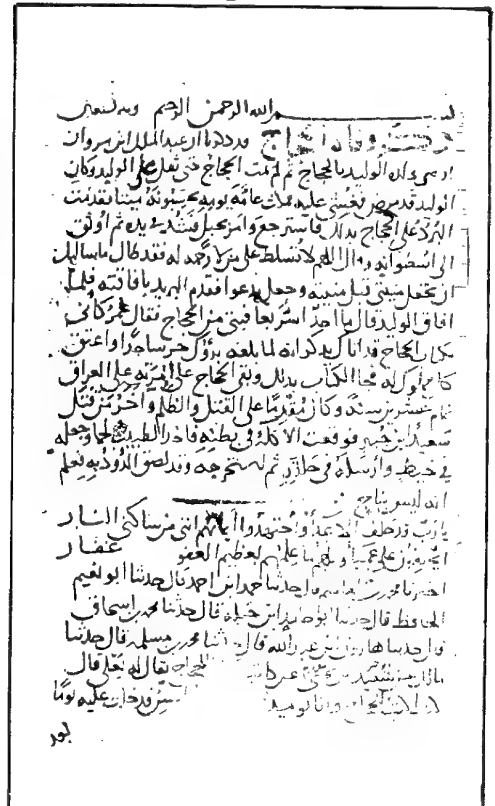 بسم الله الرحمن الرحيم وبه نستعين
وفاة الحجاج وقد ذكرنا ان عبد الملك ابن مروان
اوصى ولده الوليد بالحجاج ثم لم يمت الحجاج حتى ثقل على الوليد وكان
الوليد قد مرض فغشي عليه فمكث عامة يومه يحسبونه ميتا فقدمت
البرد على الحجاج بذلك فاسترجع وامر بحبل فشد في يده ثم اوثق
الى اسطوانه وقال اللهم لا تسلط على من لا رحمه له فقد طال ما سالتك
ان تجعل منيتي قبل منيته وجعل يدعوا فقدم البريد بافاقته فلما
افاق الوليد قال ما احد اسر بعافيتي من الحجاج فقال عمر كاني
بكتاب الحجاج قد اتاك يذكر انه لما بلغه برؤك خر ساجدا واعتق
كل مملوك له فجا الكتاب بذلك وبقي الحجاج على امرته على العراق
تمام عشرين سنه وكان مقدما على القتل والظلم واخر من قتل
سعيد ابن جبير فوقعت الاكله في بطنه فاخذ الطبيب لحما وجعله
في خيط وارسله في حلقه ثم استخرجه وقد لصق الدود به فعلم
انه ليس بناج
يا رب قد حلف الاعدا واجتهدوا ايمانهم انني من ساكني النار
ايحلفون على عميا ويلهم ما علمهم بعظيم العفو غفار
اخبرنا محمد قال حدثنا حمد ابن احمد قال حدثنا ابو نعيم
الحافظ قال حدثنا ابو حامد ابن جبله قال حدثنا محمد بن اسحاق
قال حدثنا هارون ابن عبد الله قال حدثنا محمد بن مسلمه قال حدثنا
مالك الحجاج يقال له يعلى قال
وانا يوميذ فدخلت عليه يوما
بعد